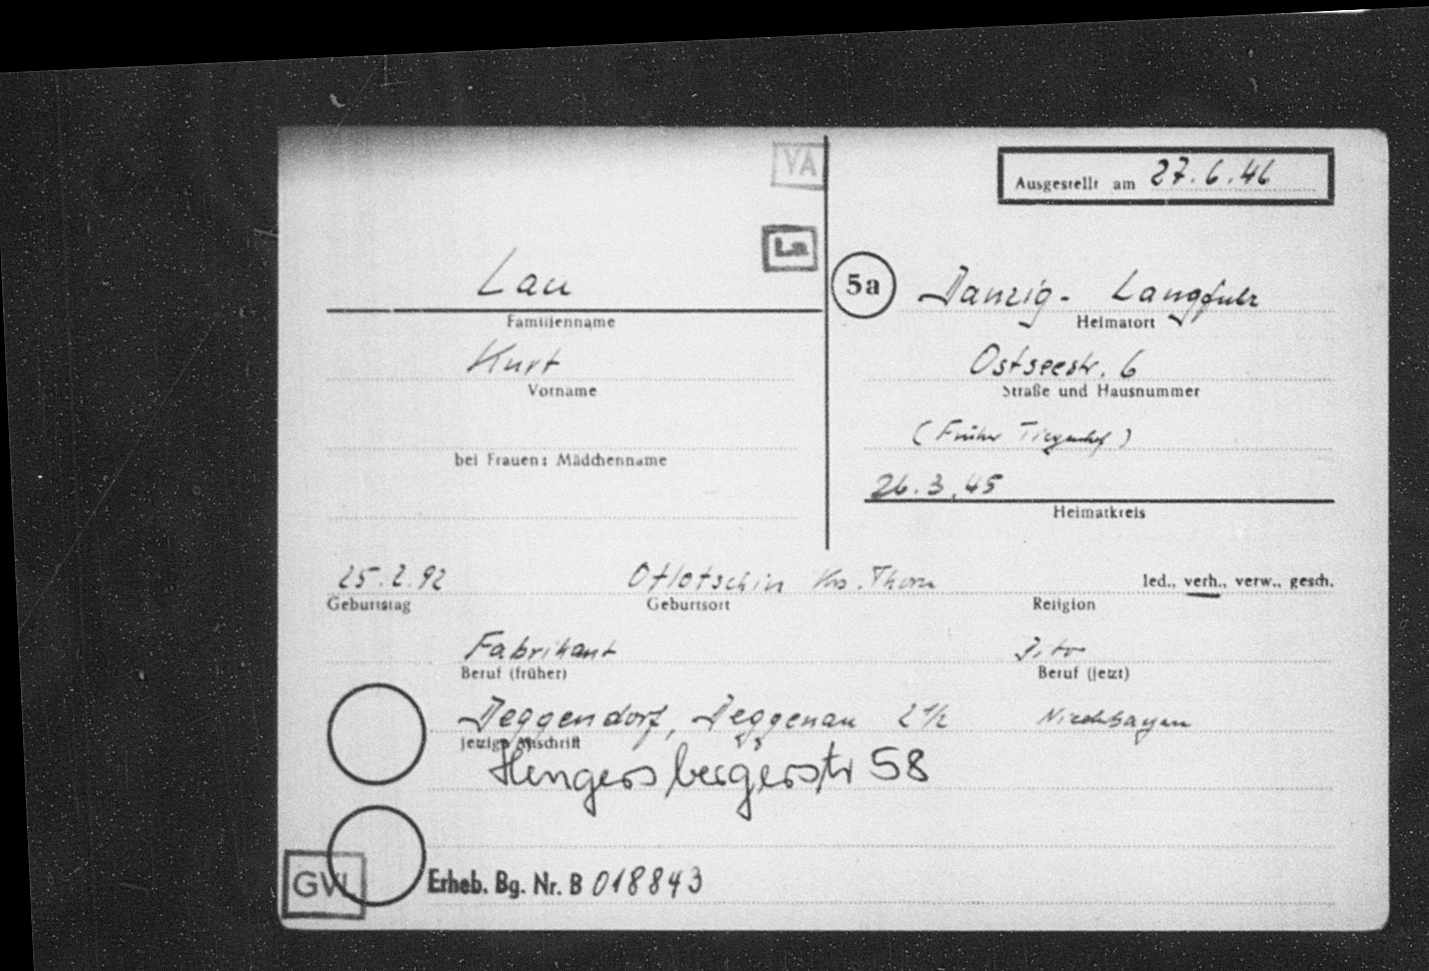 YA
Ausgestellt am 27.6.46
La
Lau
Familienname
5a
Danzig- Langfuhr
Heimatort
Kurt
Vorname
Ostseestr. 6
Straße und Hausnummer
bei Frauen: Mädchenname
(Früher Tiegenhof)
26.3.45
Heimatkreis
25.2.92 Otlotschin Krs. Thorn led., verh., verw., gesch.
Geburtstag Geburtsort Religion
Fabrikant
Beruf (früher) Beruf (jetzt)
Deggendorf, Deggenau 2 1/2 Niederbayern
jetzige Anschrift
Hengersbergerstr 58
GVL
Erheb. Bg. Nr. B 018843